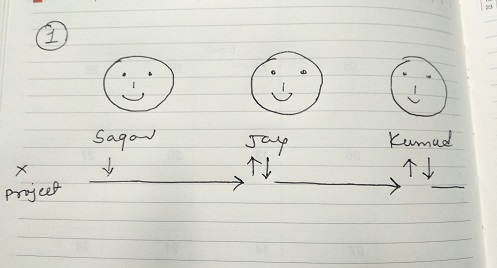 1
Sagar
Jay
Kumud
X
project